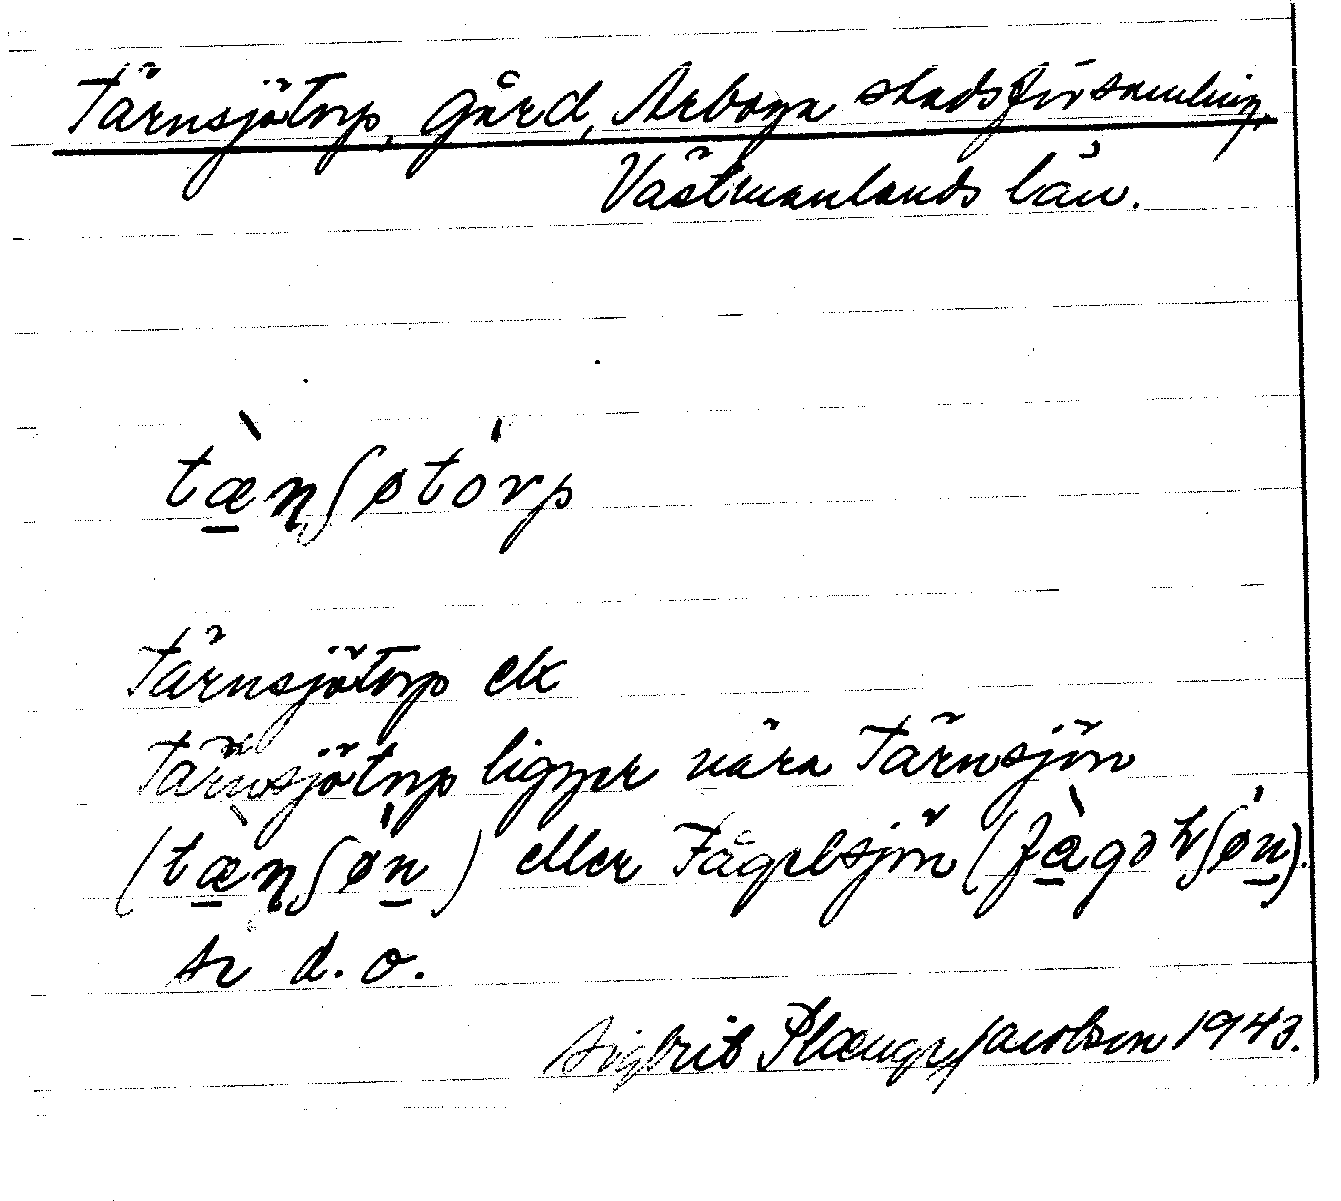 Tärnsjötorp, Gård, Arboga stadsförsamling,
Västmanlands län.
tæ̀ɳʃøtórp
Tärnsjötorp ek
Tärnsjötorp ligger nära Tärnsjön
(tæ̀ɳʃǿn) eller Fågelsjön (fàgəlʃǿn).
se d. o.
Sigbrit Plænge Jacobson 1943.